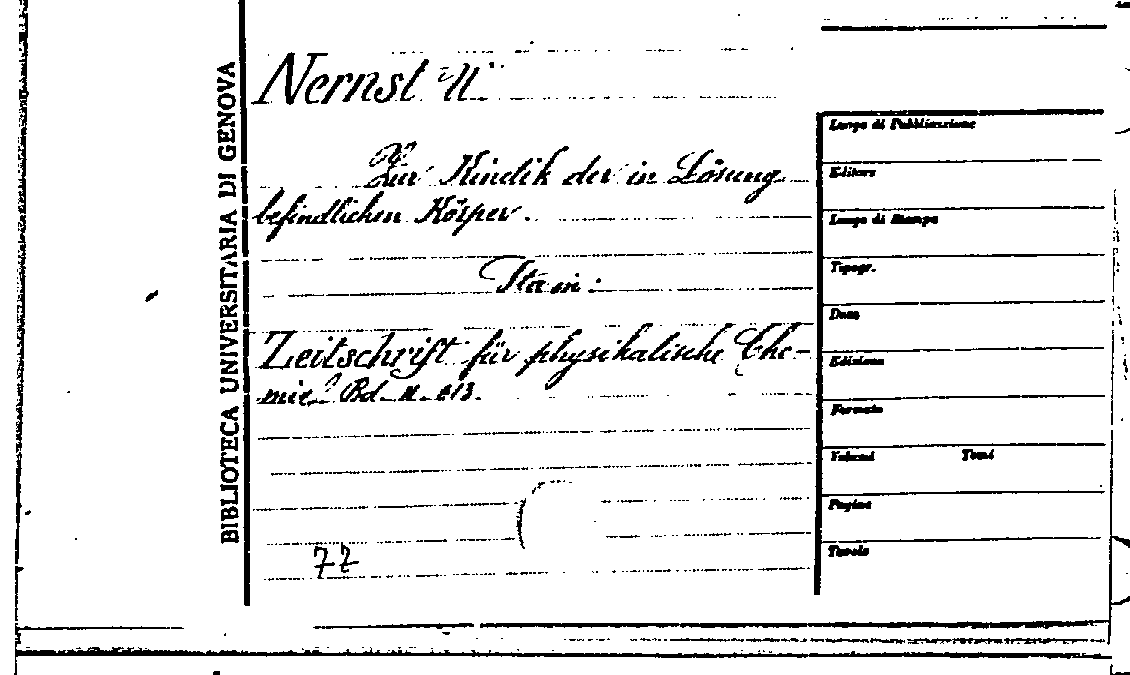 BIBLIOTECA UNIVERSITARIA DI GENOVA
Nernst W.
Zur Kinetik der in Lösung
befindlichen Körper.
Zeitschrift für physikalische Che-
mie Bd. 613.
77
Luogo di Pubblicazione
Editore
Luogo di Stampa
Tipogr.
Data
Edizione
Formato
Volumi Tomi
Pagine
Tavole